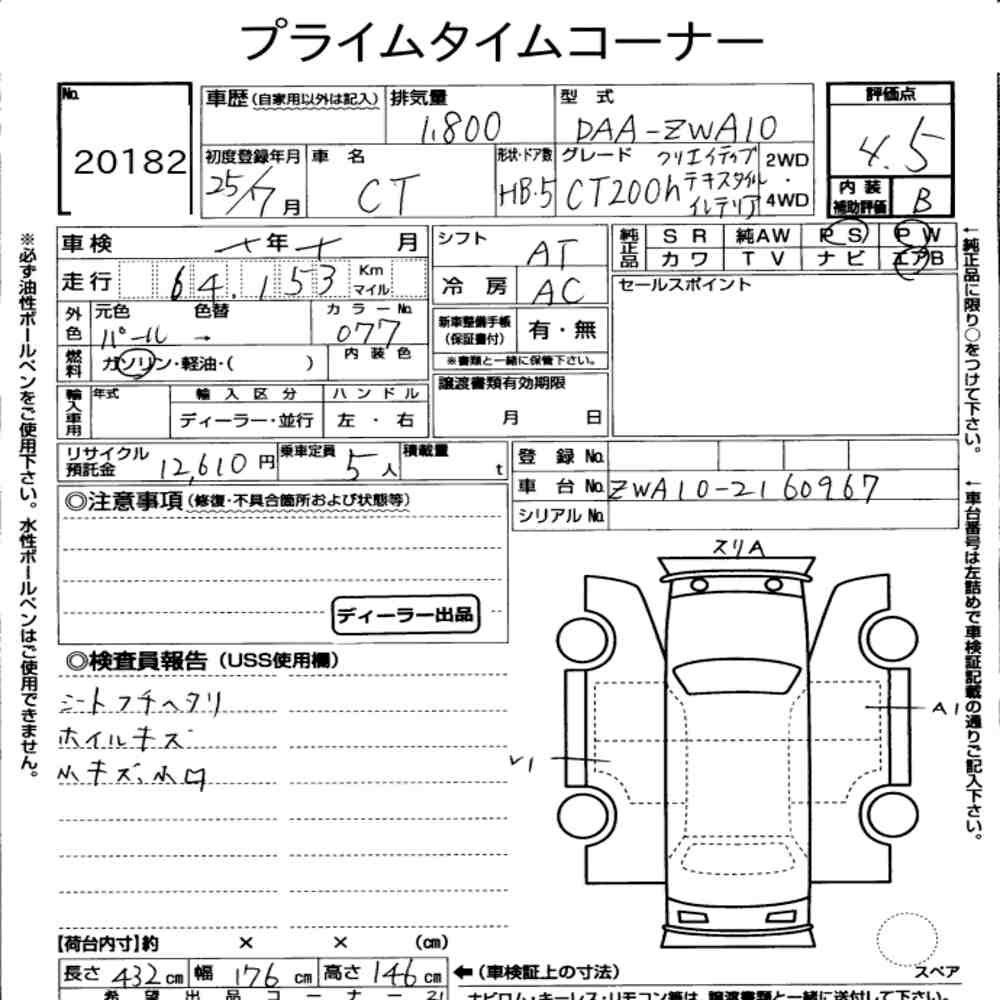 プライムタイムコーナー
No.
20182
車歴(自家用以外は記入)
排気量
1,800
型 式
DAA-ZWA10
評価点
4.5
初度登録年月
25/7月
車 名
CT
形状・ドア数
HB・5
グレード
CT200h
クリエイティブ
テキスタイル
インテリア
2WD
・
4WD
内 装
補助評価
B
車検
年 月
走行
64,153
Km
マイル
シフト
AT
冷 房
AC
純正品
SR 純AW PS PW
カワ TV ナビ エアB
セールスポイント
外色
元色
パール
色替
→
カラーNo.
077
内装色
燃料
ガソリン・軽油・( )
新車整備手帳
(保証書付)
有・無
※書類と一緒に保管下さい。
輸入車用
年式
輸入区分
ディーラー・並行
ハンドル
左・右
譲渡書類有効期限
月 日
リサイクル
預託金
12,610円
乗車定員
5人
積載量
t
登 録 No.
車 台 No.
ZWA10-2160967
シリアル No.
◎注意事項(修復・不具合箇所および状態等)
ディーラー出品
◎検査員報告(USS使用欄)
シートフチヘタリ
ホイルキズ
小キズ、小凹
スリA
A1
【荷台内寸】約 × × (cm)
長さ 432cm 幅 176cm 高さ 146cm
←(車検証上の寸法)
スペア
希望出品コーナー 21
ナビロム・キーレス・リモコン等は、譲渡書類と一緒に送付して下さい。
※必ず油性ボールペンをご使用下さい。水性ボールペンはご使用できません。
←純正品に限り○をつけて下さい。
←車台番号は左詰めで車検証記載の通りご記入下さい。